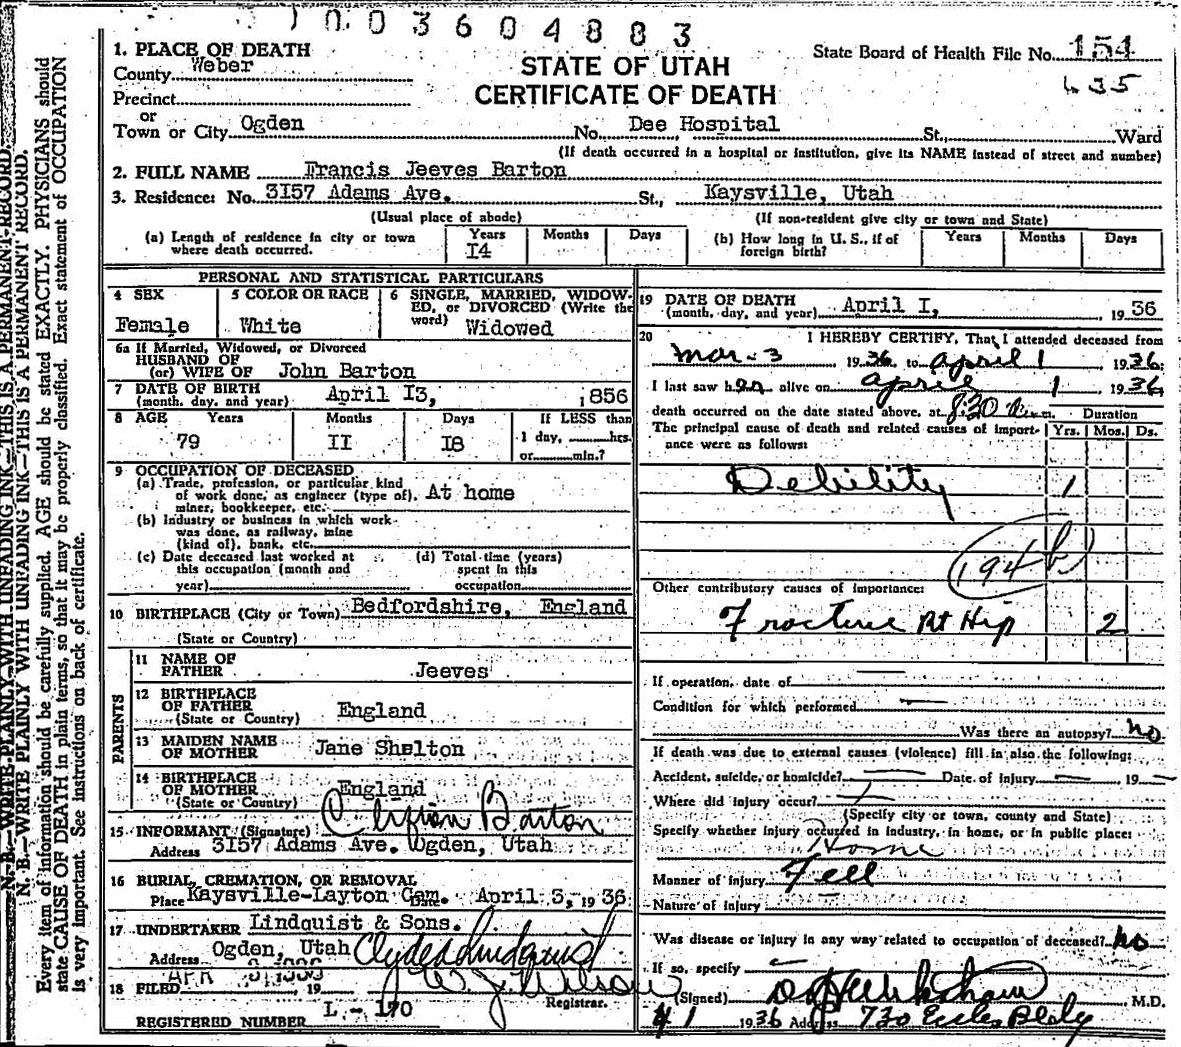 1003604883
1. PLACE OF DEATH
County Weber
Precinct
or
Town or City Ogden No. Dee Hospital St., Ward
STATE OF UTAH
CERTIFICATE OF DEATH
State Board of Health File No. 154
435
(If death occurred in a hospital or institution, give its NAME instead of street and number)
2. FULL NAME Francis Jeeves Barton
3. Residence: No. 3157 Adams Ave. St., Kaysville, Utah
(Usual place of abode) (If non-resident give city or town and State)
(a) Length of residence in city or town where death occurred. Years 14 Months Days
(b) How long in U. S., if of foreign birth? Years Months Days
PERSONAL AND STATISTICAL PARTICULARS
4 SEX Female
5 COLOR OR RACE White
6 SINGLE, MARRIED, WIDOWED, or DIVORCED (Write the word) Widowed
6a If Married, Widowed, or Divorced
HUSBAND OF
(or) WIFE OF John Barton
7 DATE OF BIRTH (month, day, and year) April 13, 1856
8 AGE Years 79 Months 11 Days 18 If LESS than 1 day, hrs. or min.?
9 OCCUPATION OF DECEASED
(a) Trade, profession, or particular kind of work done, as engineer (type of), miner, bookkeeper, etc. At home
(b) Industry or business in which work was done, as railway, mine (kind of), bank, etc.
(c) Date deceased last worked at this occupation (month and year)
(d) Total time (years) spent in this occupation
10 BIRTHPLACE (City or Town) Bedfordshire, England
(State or Country)
PARENTS
11 NAME OF FATHER Jeeves
12 BIRTHPLACE OF FATHER (State or Country) England
13 MAIDEN NAME OF MOTHER Jane Shelton
14 BIRTHPLACE OF MOTHER (State or Country) England
15 INFORMANT (Signature) Clifton Barton
Address 3157 Adams Ave. Ogden, Utah
16 BURIAL, CREMATION, OR REMOVAL
Place Kaysville-Layton Cem. April 3, 1936
17 UNDERTAKER Lindquist & Sons.
Address Ogden, Utah Clyde Lindquist
18 FILED APR 19 W. J. Wilson
Registrar.
REGISTERED NUMBER L - 170
19 DATE OF DEATH (month, day, and year) April 1, 1936
20 I HEREBY CERTIFY, That I attended deceased from
Mar - 3 1936 to April 1 1936
I last saw her alive on April 1 1936
death occurred on the date stated above, at 8:30 m.
The principal cause of death and related causes of importance were as follows:
Duration Yrs. Mos. Ds.
Debility 1
194 b
Other contributory causes of importance:
Fracture Rt Hip 2
If operation, date of
Condition for which performed
Was there an autopsy? No
If death was due to external causes (violence) fill in also the following:
Accident, suicide, or homicide? Date of injury 19
Where did injury occur?
(Specify city or town, county and State)
Specify whether injury occurred in industry, in home, or in public place:
Home
Manner of injury Fell
Nature of injury
Was disease or injury in any way related to occupation of deceased? No
If so, specify
(Signed) M.D.
4/1 1936 Address 730 Eccles Bldg
N. B.—WRITE PLAINLY WITH UNFADING INK—THIS IS A PERMANENT RECORD.
N. B.—WRITE PLAINLY WITH UNFADING INK—THIS IS A PERMANENT RECORD.
Every item of information should be carefully supplied. AGE should be stated EXACTLY. PHYSICIANS should
state CAUSE OF DEATH in plain terms, so that it may be properly classified. Exact statement of OCCUPATION
is very important. See instructions on back of certificate.